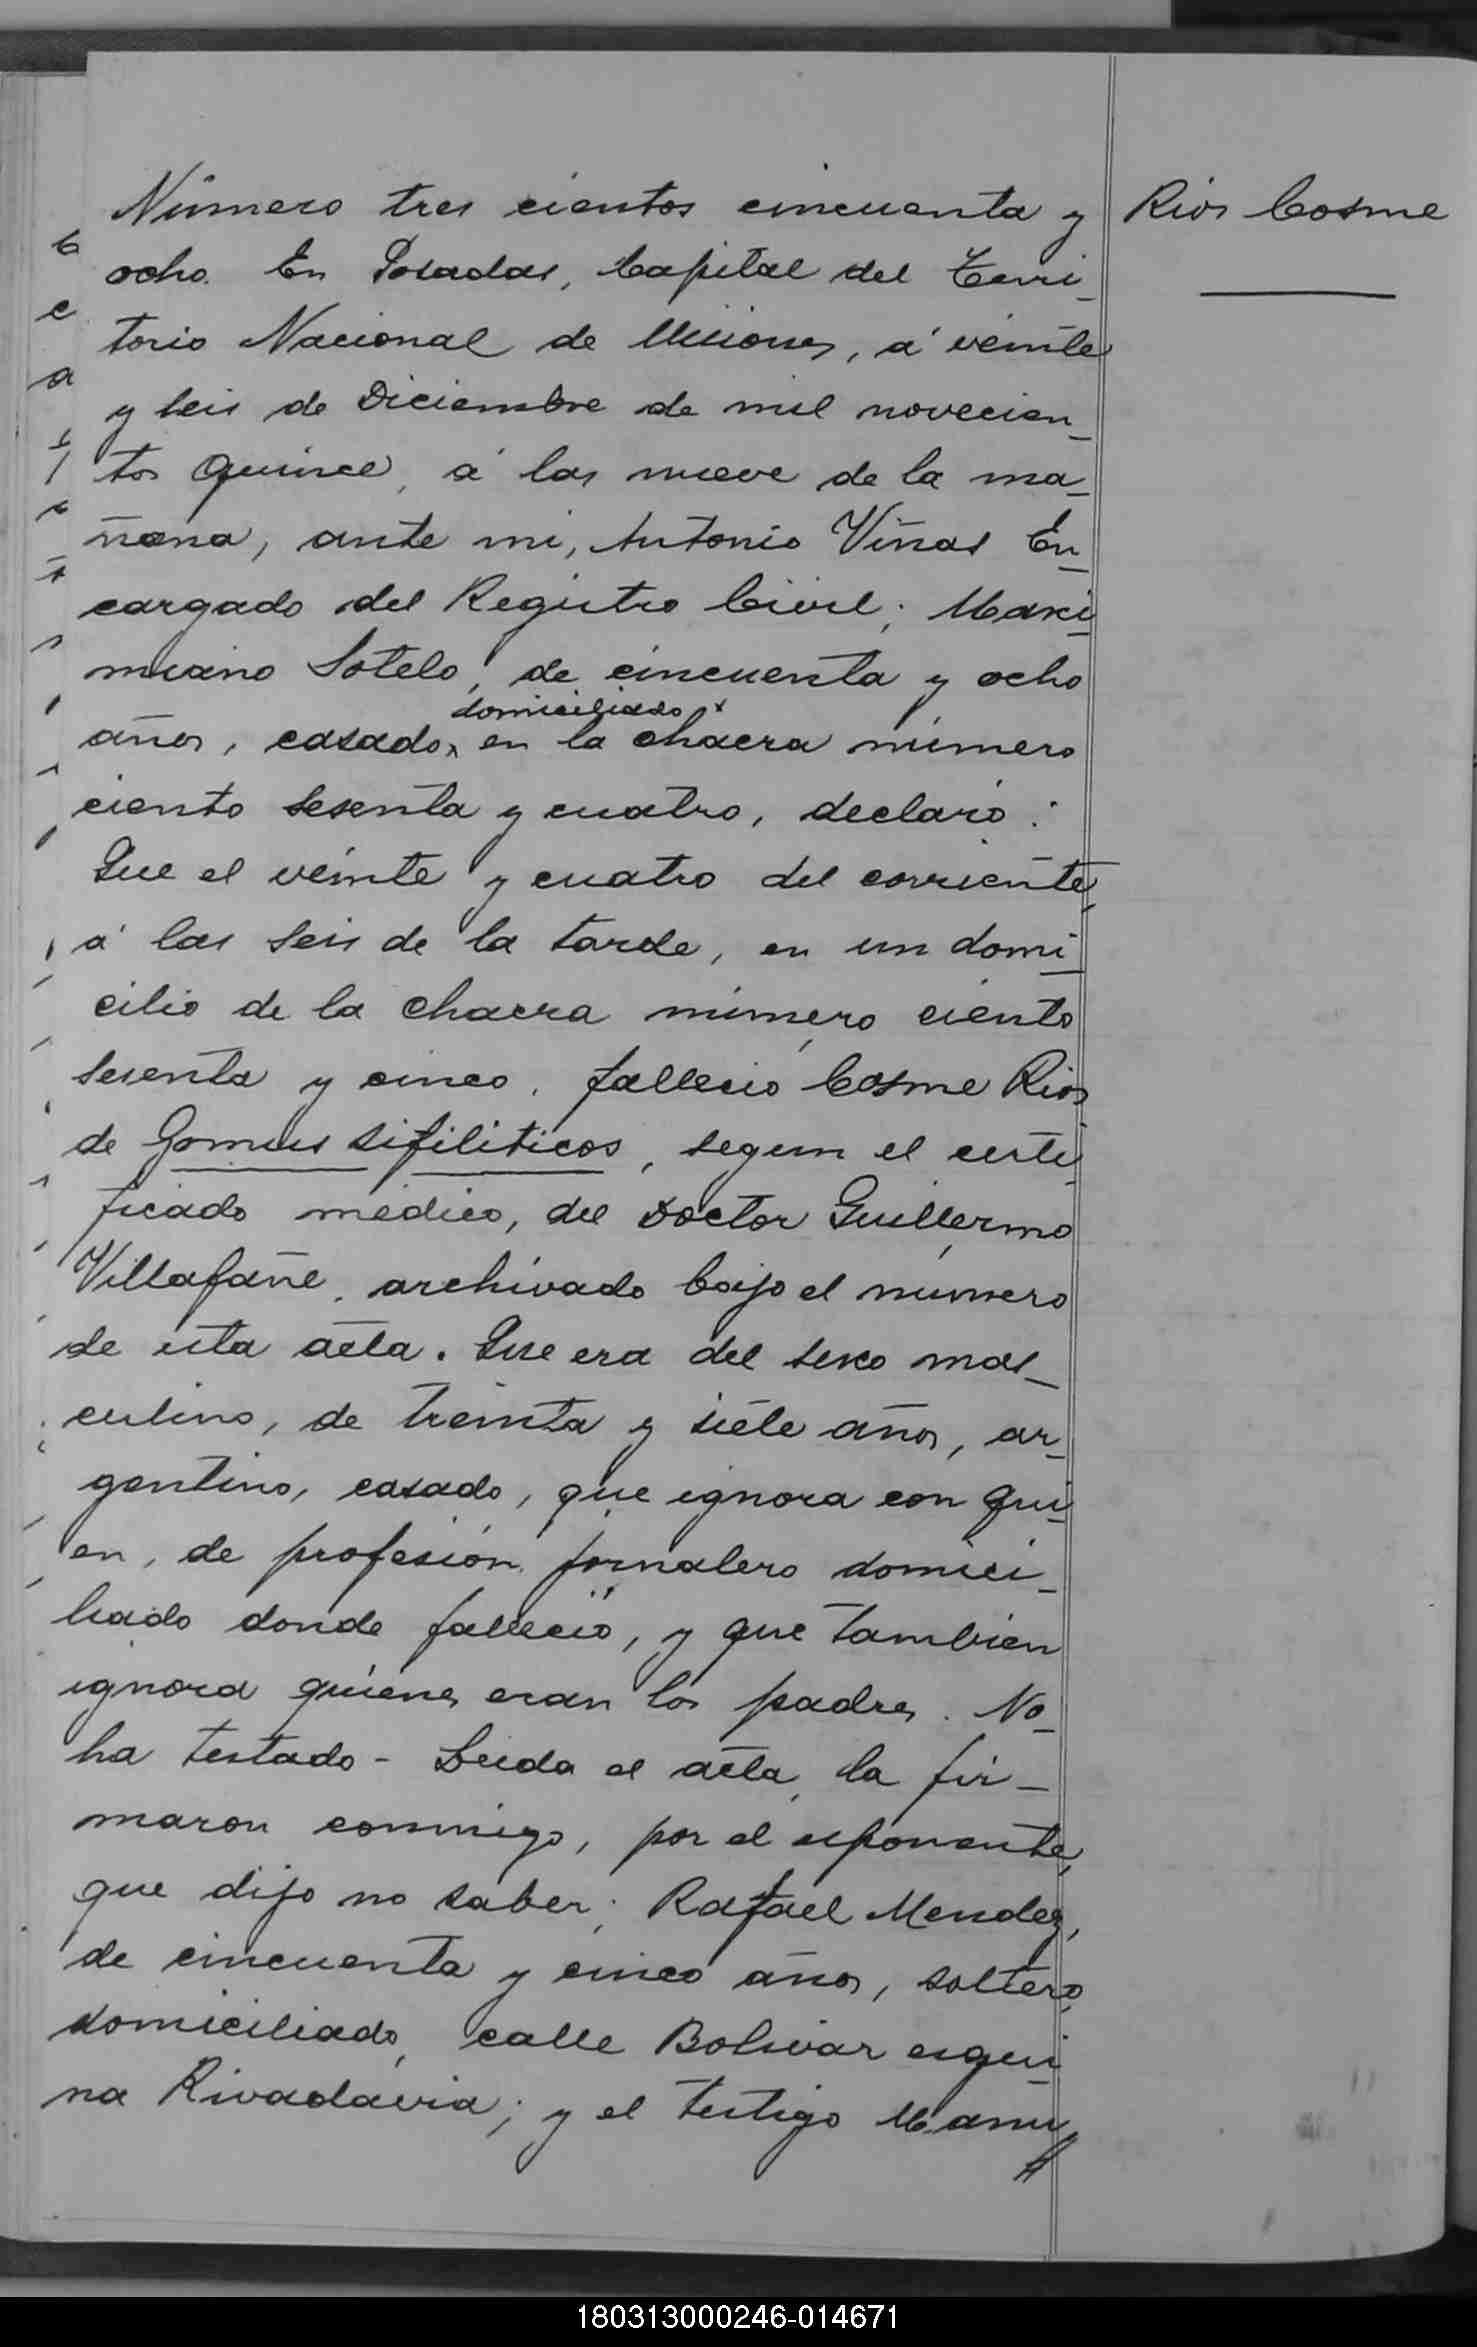 Número tres cientos cincuenta y
Rios Cosme
ocho. En Posadas, Capital del Terri-
torio Nacional de Misiones, á veinte
y seis de Diciembre de mil novecien-
tos quince, á las nueve de la ma-
ñana, ante mi, Antonio Viñas En-
cargado del Registro Civil; Maxi-
miano Sotelo, de cincuenta y ocho
domiciliado
años, casado, en la chacra número
ciento sesenta y cuatro, declaró:
Que el veinte y cuatro del corriente,
á las seis de la tarde, en un domi-
cilio de la chacra número ciento
sesenta y cinco, falleció Cosme Rios
de Gomas sifiliticos, segun el certi-
ficado médico, del Doctor Guillermo
Villafañe, archivado bajo el número
de esta acta. Que era del sexo mas-
culino, de treinta y siete años, ar-
gentino, casado, que ignora con qui-
en, de profesión jornalero domici-
liado donde falleció, y que tambien
ignora quienes eran los padres. No
ha testado - Leida el acta, la fir-
maron conmigo, por el esponente,
que dijo no saber; Rafael Mendez,
de cincuenta y cinco años, soltero,
domiciliado, calle Bolivar esqui-
na Rivadavia; y el testigo Manu
180313000246-014671